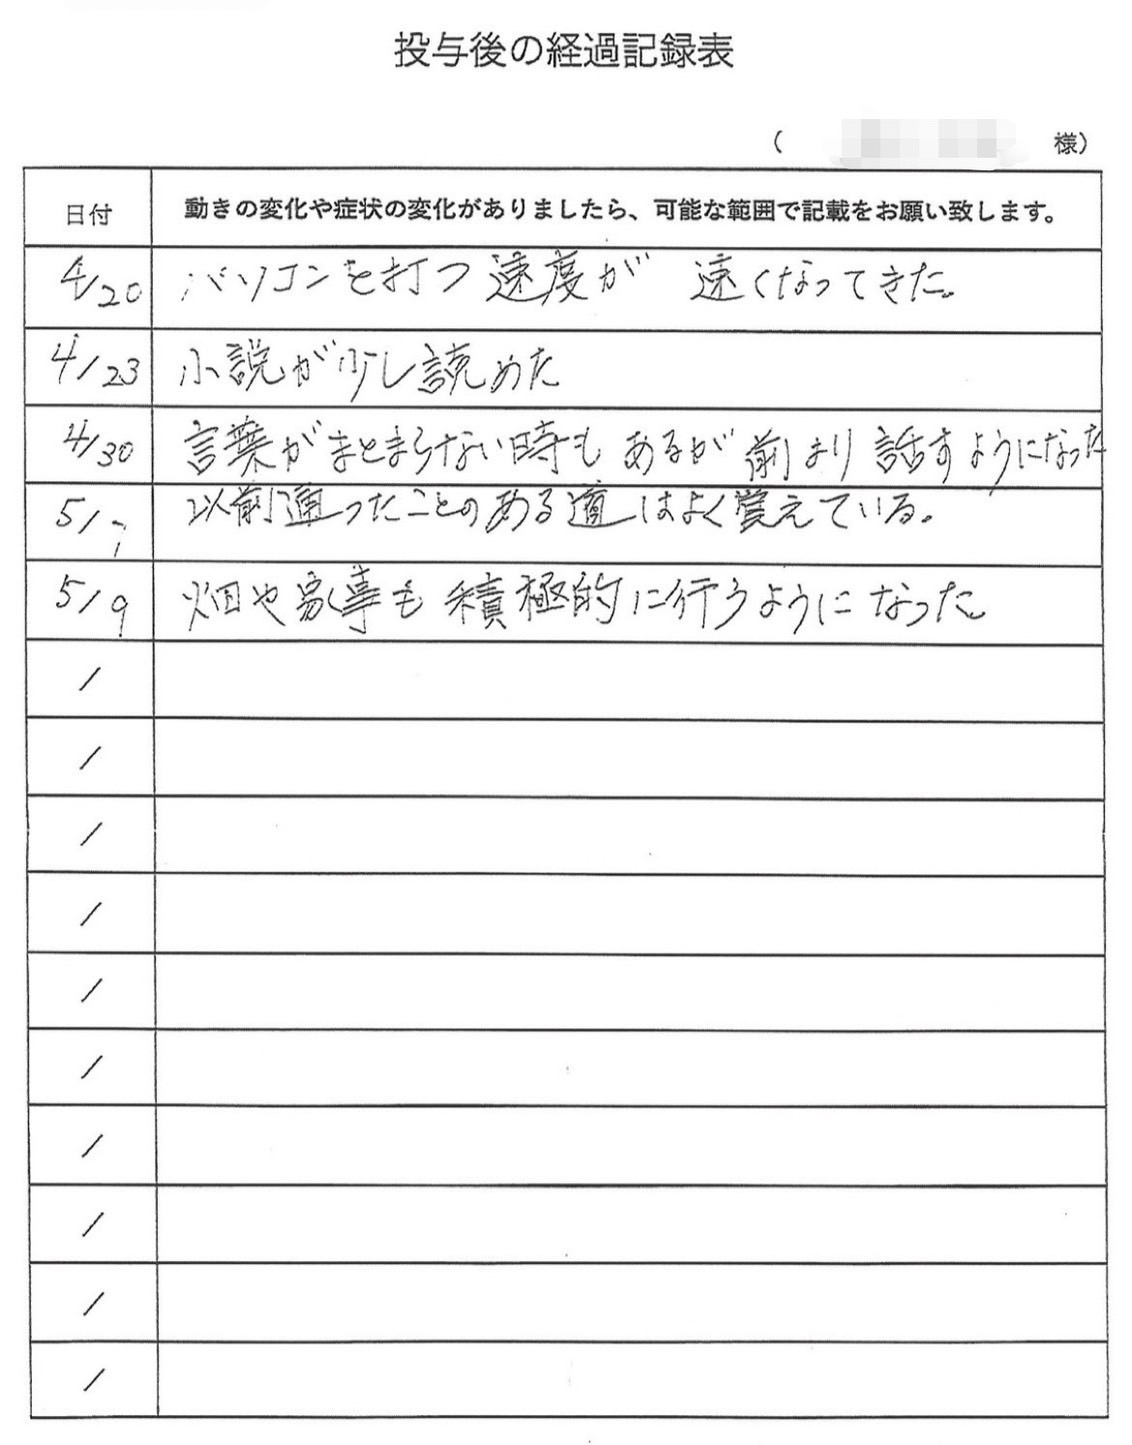 投与後の経過記録表
( 様)
日付 動きの変化や症状の変化がありましたら、可能な範囲で記載をお願い致します。
4/20 パソコンを打つ速度が 速くなってきた。
4/23 小説が少し読めた
4/30 言葉がまとまらない時もあるが前より話すようになった
5/1 以前通ったことのある道はよく覚えている。
5/9 畑や家事も積極的に行うようになった
/
/
/
/
/
/
/
/
/
/